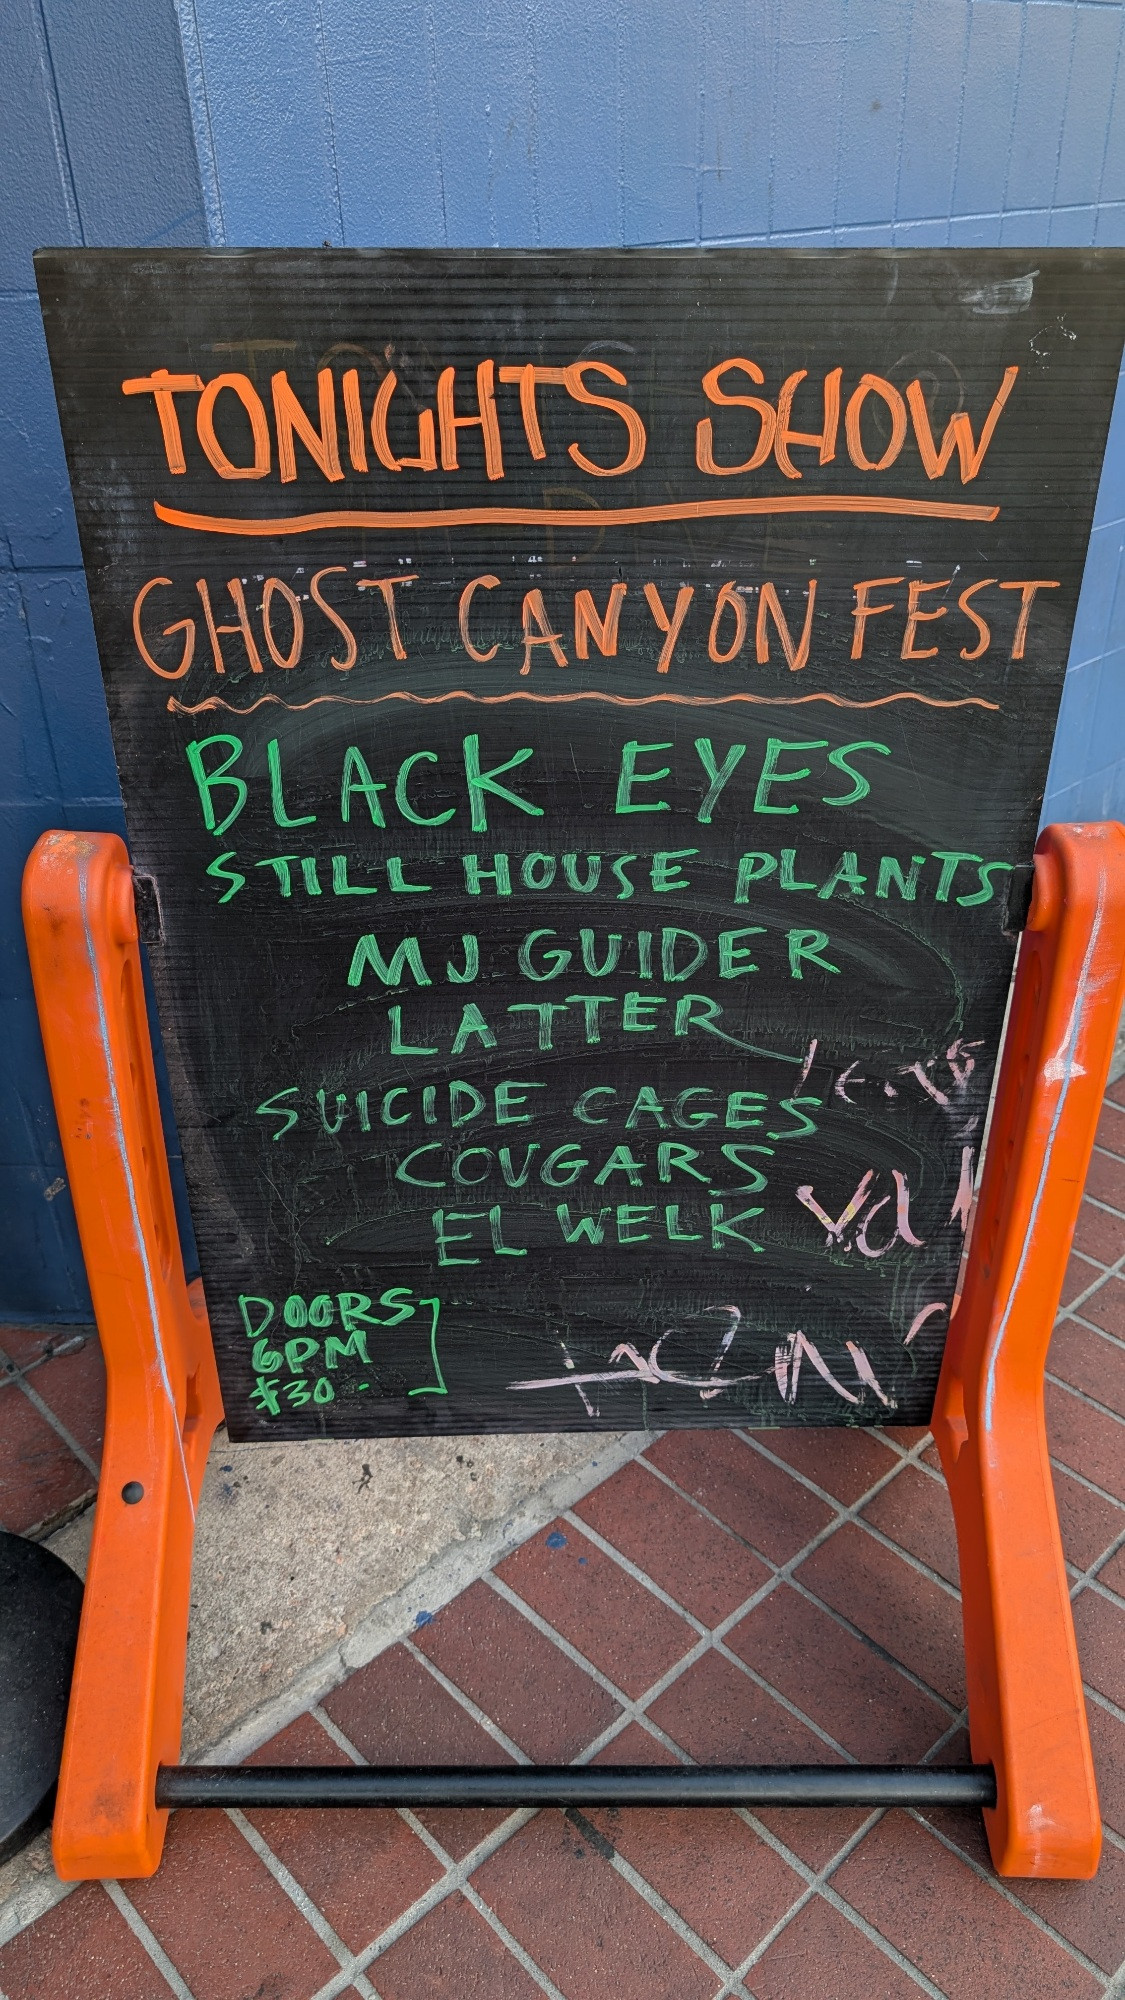 TONIGHTS SHOW
GHOST CANYON FEST
BLACK EYES
STILL HOUSE PLANTS
MJ GUIDER
LATTER
SUICIDE CAGES
COUGARS
EL WELK
DOORS
6PM
$30